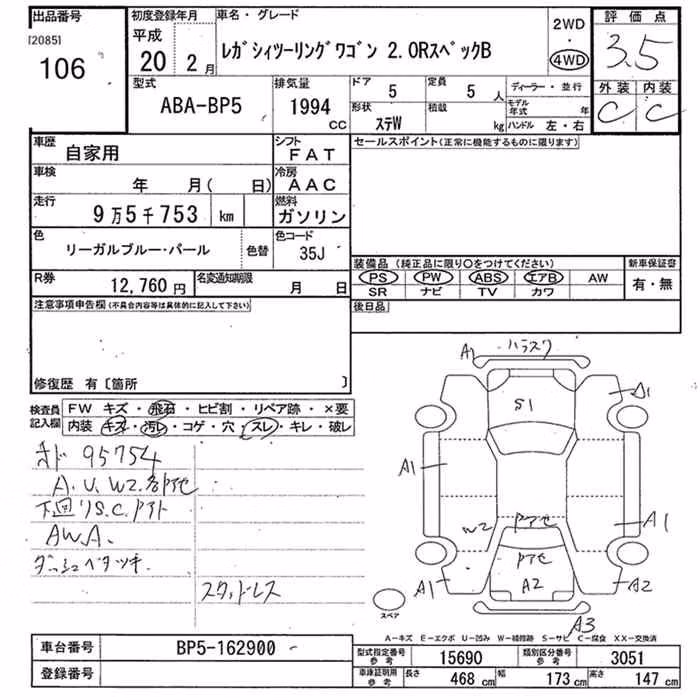 出品番号
[2085]
106
初度登録年月
平成
20 2 月
車名・グレード
レガシィツーリングワゴン 2.0RスペックB
2WD
・
4WD
評価点
3.5
外装 内装
C C
型式
ABA-BP5
排気量
1994
CC
ドア
5
定員
5 人
形状
ステW
積載
kg
ディーラー・並行
モデル年式 年
ハンドル 左・右
車歴
自家用
シフト
FAT
車検
年 月( 日)
冷房
AAC
走行
9万5千753 km
燃料
ガソリン
色
リーガルブルー・パール
色替
色コード
35J
R券
12,760 円
名変通知期限
月 日
セールスポイント(正常に機能するものに限ります)
装備品(純正品に限り○をつけてください)
PS PW ABS エアB AW
SR ナビ TV カワ
新車保証書
有・無
後日品
注意事項申告欄(不具合内容等は具体的に記入して下さい)
修復歴 有〔箇所 〕
検査員記入欄
FW キズ・飛石・ヒビ割・リペア跡・×要
内装 キズ・汚レ・コゲ・穴・スレ・キレ・破レ
オド 95754
A.U.W2.各アセ
下回リS.C.アト
AW A.
ダッシュベタツキ
スタッドレス
A1
ハラスク
A1
S1
A1
A1
W2
アセ
アセ
A2
A1
A2
A3
スペア
A-キズ E-エクボ U-凹み W-補修跡 S-サビ C-腐食 XX-交換済
車台番号
BP5-162900
登録番号
型式指定番号 参考
15690
類別区分番号 参考
3051
車庫証明用 参考
長さ 468 cm
幅 173 cm
高さ 147 cm